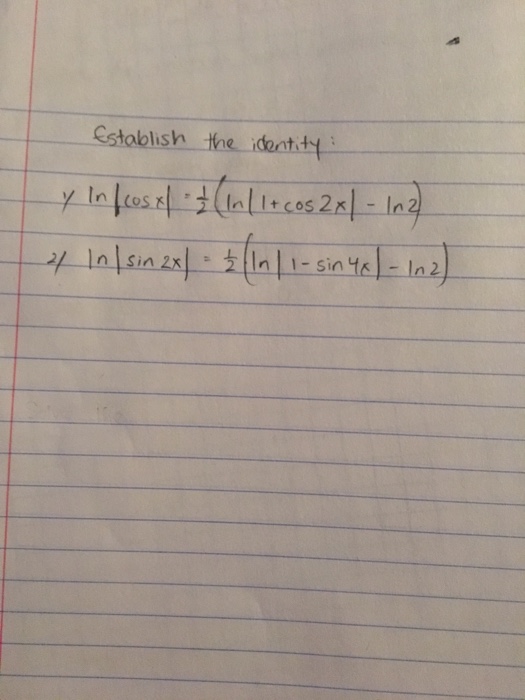 Establish the identity:
1/ ln|cosx| = 1/2(ln|1+cos2x| - ln2)
2/ ln|sin 2x| = 1/2(ln|1-sin4x| - ln2)